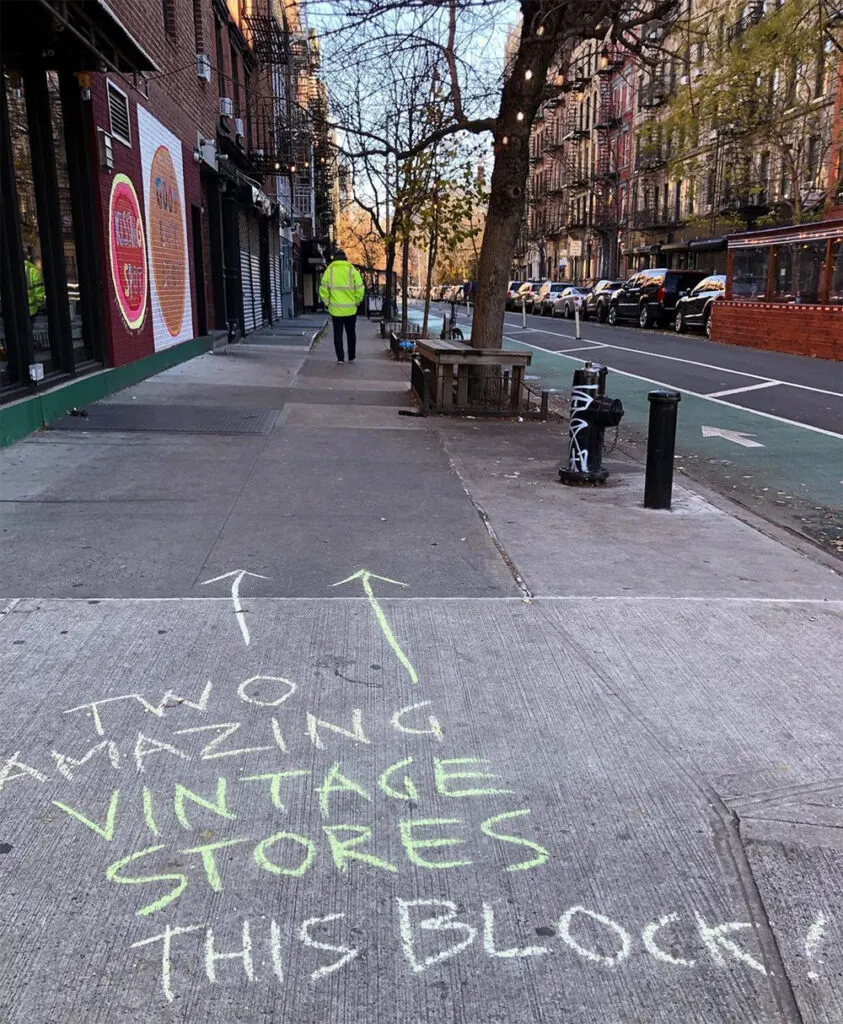 TWO
AMAZING
VINTAGE
STORES
THIS BLOCK!